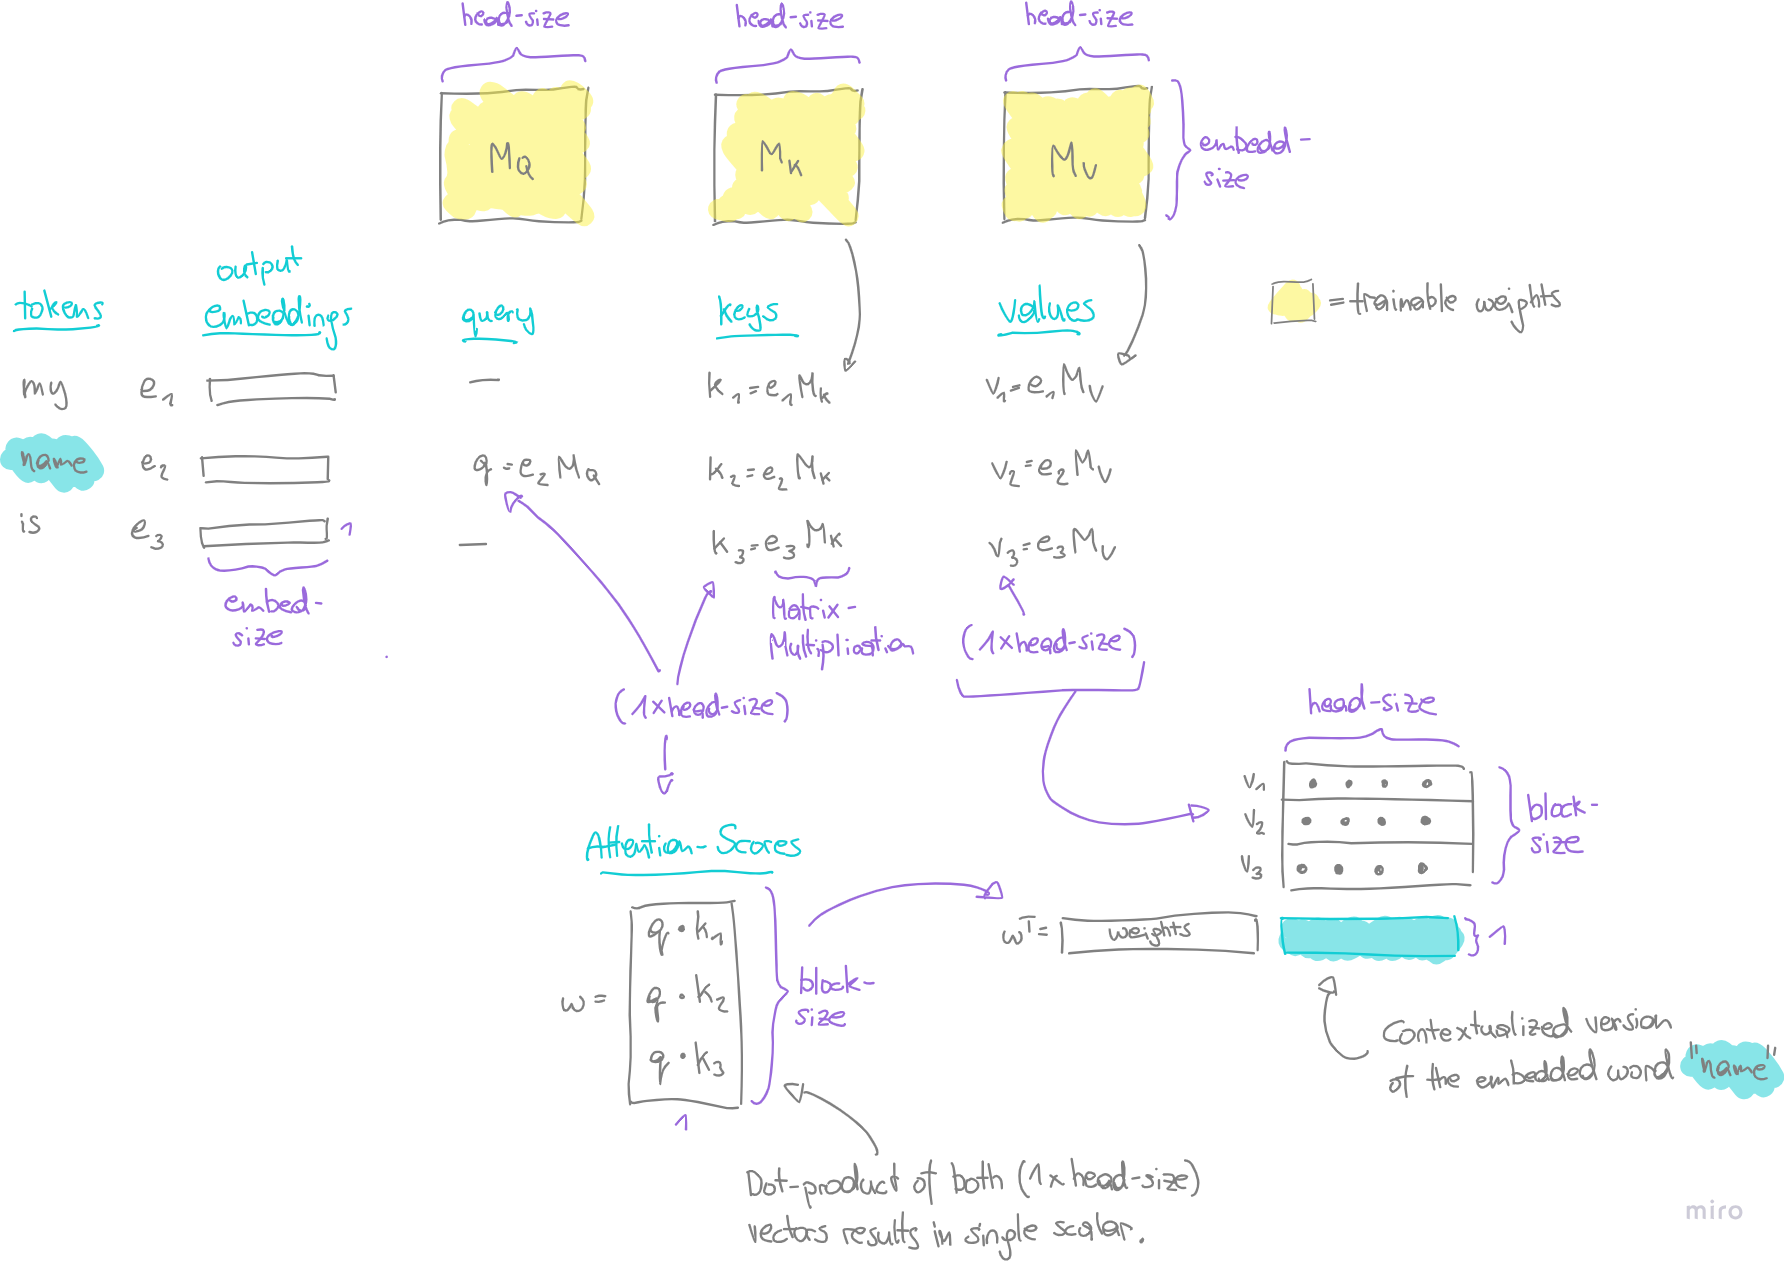 head-size
head-size
head-size
M_Q
M_K
M_V
embedd-
size
tokens
output
embeddings
query
keys
values
= trainable weights
my
e_1
—
k_1 = e_1 M_K
v_1 = e_1 M_V
name
e_2
q = e_2 M_Q
k_2 = e_2 M_K
v_2 = e_2 M_V
is
e_3
1
—
k_3 = e_3 M_K
v_3 = e_3 M_V
embed-
size
Matrix-
Multipliation
(1xhead-size)
(1xhead-size)
head-size
v_1
v_2
v_3
block-
size
Attention-Scores
w =
q · k_1
q · k_2
q · k_3
1
block-
size
w^T =
weights
1
Contextualized version
of the embedded word "name"
Dot-product of both (1xhead-size)
vectors results in single scalar.
miro